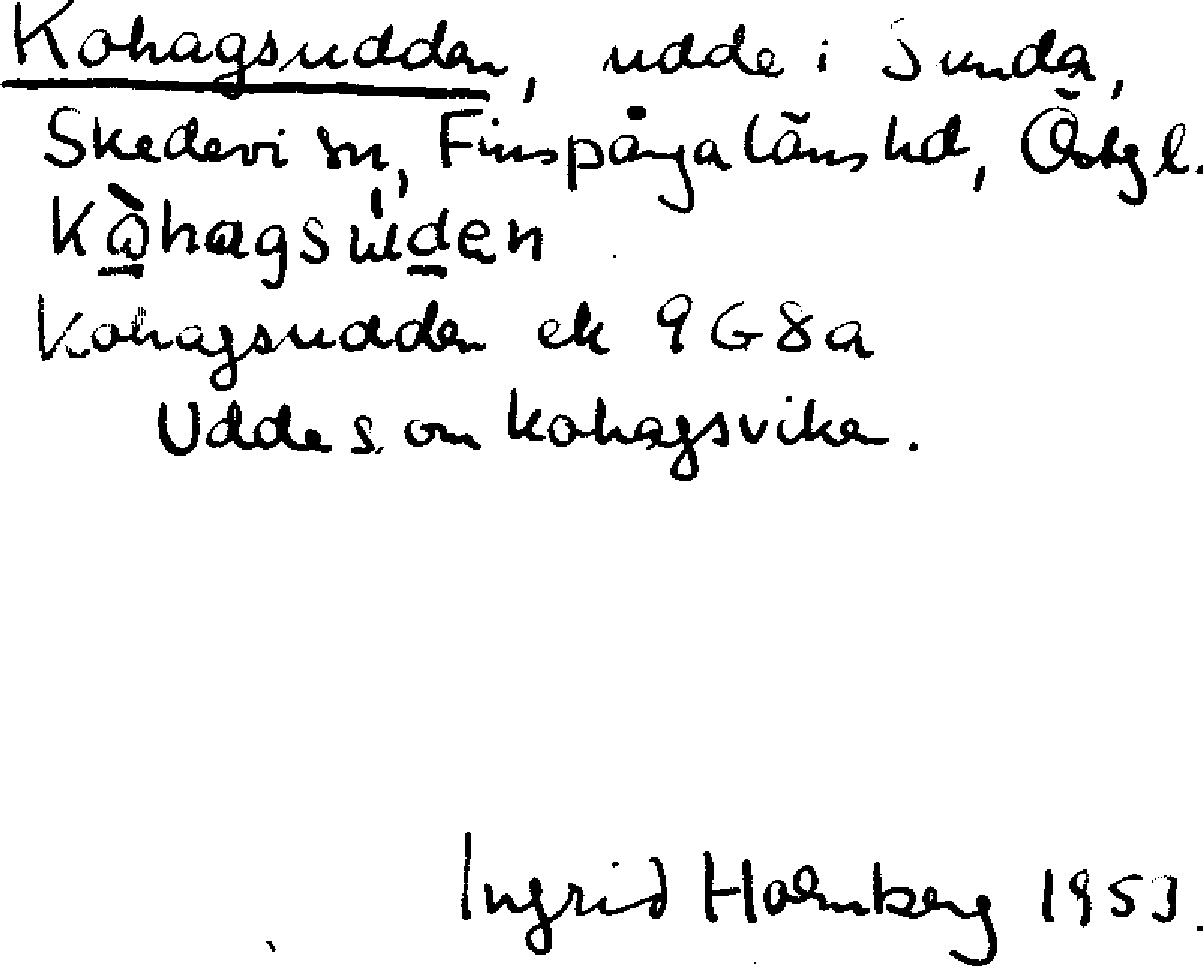 Kohagsudden, udde i Sunda,
Skedevi sn, Finspånga läns hd, Östgl.
Kòhagsùden
Kohagsudden ek 9G8a
Udde s. om Kohagsviken.
Ingrid Holmberg 1953.